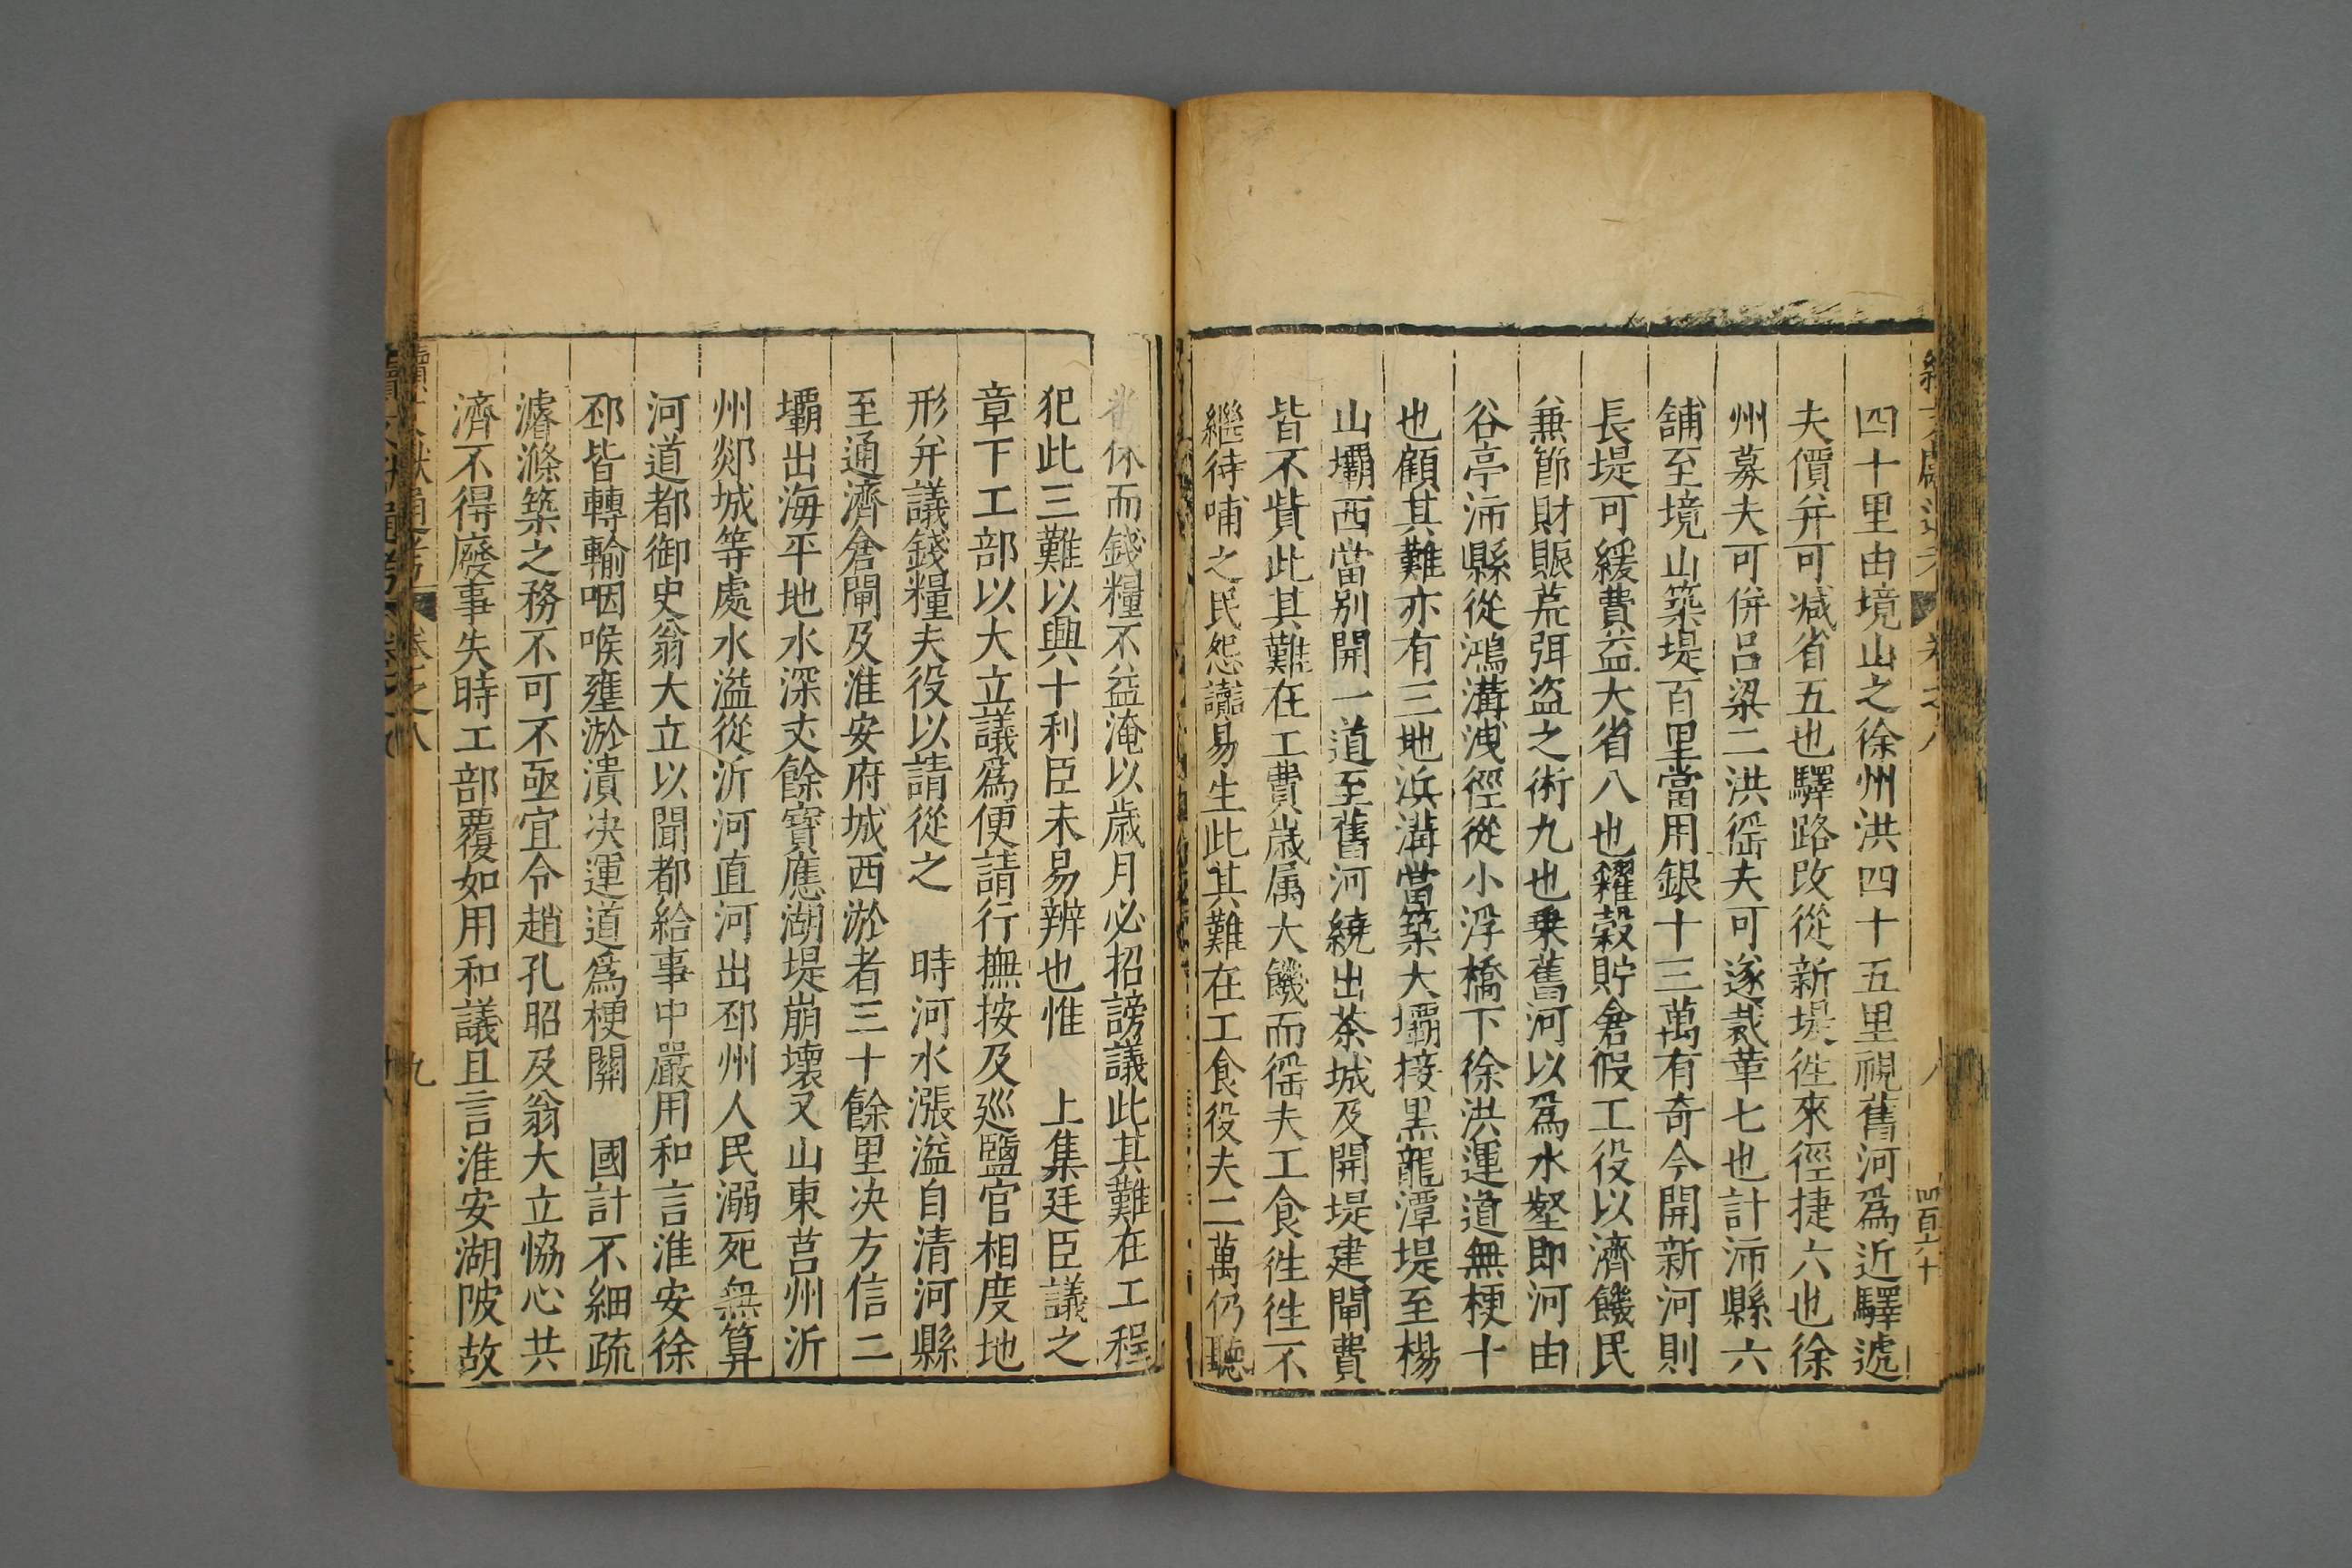 四十里由境山之徐州洪四十五里視舊河爲近驛遞
夫價并可减省五也驛路改從新堤徃來徑捷六也徐
州募夫可併呂梁二洪徭夫可遂裁革七也計沛縣六
舖至境山築堤百里當用銀十三萬有奇今開新河則
長堤可緩費益大省八也糴榖貯倉假工役以濟饑民
兼節財賑荒弭盗之術九也乗舊河以爲水壑即河由
谷亭沛縣從鴻溝洩徑從小浮橋下徐洪運道無梗十
也顧其難亦有三地浜溝當築大壩接黒龍潭堤至楊
山壩西當别開一道至舊河繞出茶城及開堤建閘費
皆不貲此其難在工費歲属大饑而徭夫工食徃徃不
繼待哺之民怨讟易生此其難在工食役夫二萬仍聽
休而錢糧不益淹以歲月必招謗議此其難在工程
犯此三難以興十利臣未易辨也惟　上集廷臣議之
章下工部以大立議爲便請行撫按及廵鹽官相度地
形并議錢糧夫役以請從之　時河水漲溢自清河縣
至通濟倉閘及淮安府城西淤者三十餘里决方信二
壩出海平地水深丈餘寳應湖堤崩壊又山東莒州沂
州郯城等處水溢從沂河直河出邳州人民溺死無算
河道都御史翁大立以聞都給事中嚴用和言淮安徐
邳皆轉輸咽喉壅淤潰决運道爲梗關　國計不細疏
濬滌築之務不可不亟宜令趙孔昭及翁大立恊心共
濟不得廢事失時工部覆如用和議且言淮安湖陂故
卷之八
九
四百六十